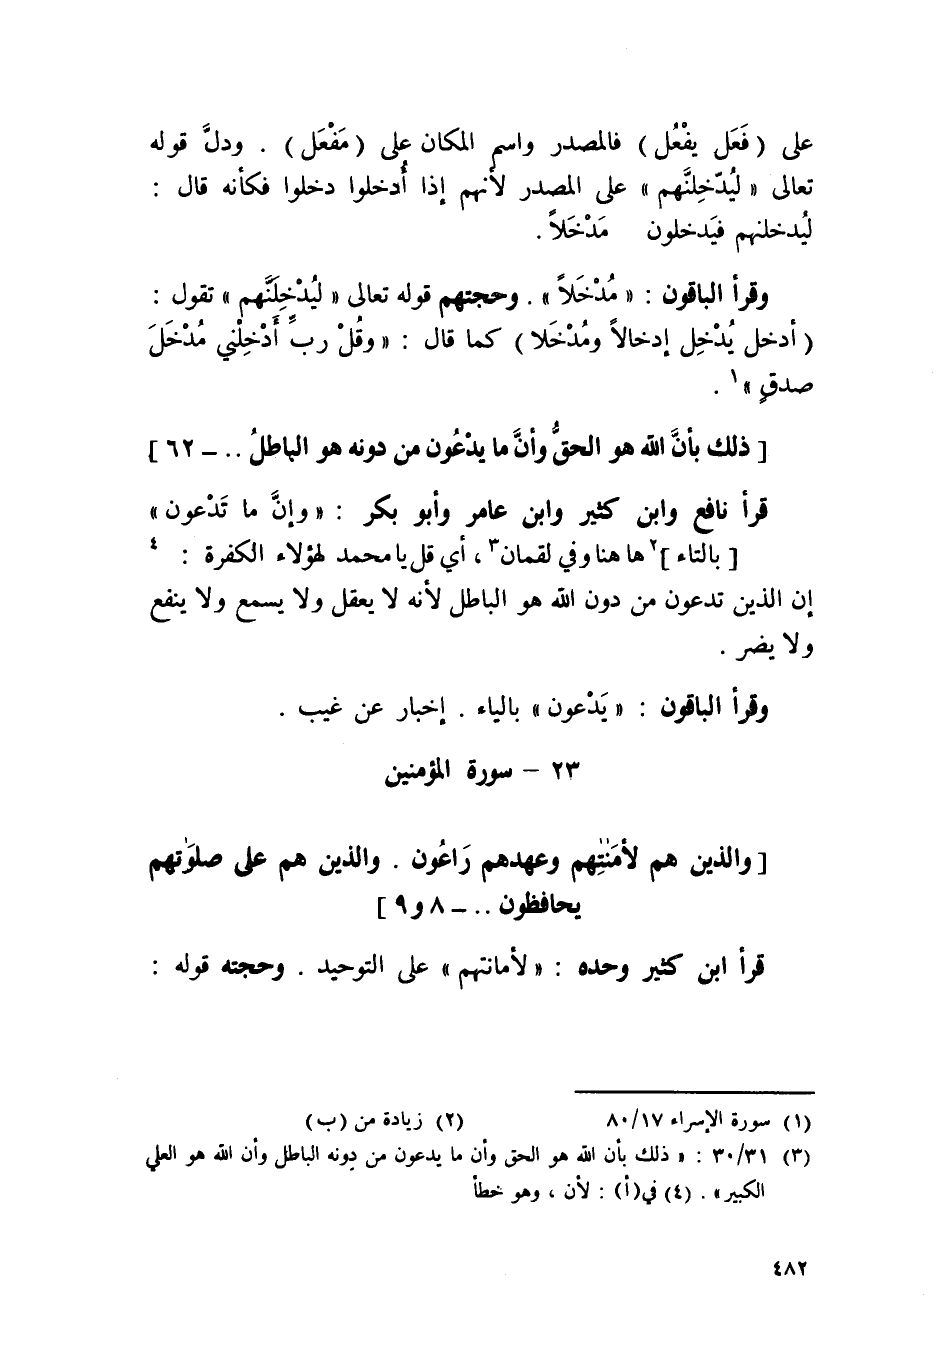 على ( فَعَل يفْعُل ) فالمصدر واسم المكان على ( مَفْعَل ) . ودلَّ قوله
تعالى « ليُدّخِلنَّهم » على المصدر لأنهم إذا أُدخلوا دخلوا فكأنه قال :
ليُدخلنهم فيَدخلون مَدْخَلاً .
وقرأ الباقون : « مُدْخَلاً » . وحجتهم قوله تعالى « ليُدْخِلَنَّهم » تقول :
( أدخل يُدْخِل إدخالاً ومُدْخَلا ) كما قال : « وقُلْ ربِّ أَدْخِلْني مُدْخَلَ
صدقٍ »١ .
[ ذلك بأنَّ الله هو الحقُّ وأنَّ ما يدْعُون من دونه هو الباطلُ .. ــ ٦٢ ]
قرأ نافع وابن كثير وابن عامر وأبو بكر : « وإنَّ ما تَدْعون »
[ بالتاء ]٢ ها هنا وفي لقمان٣ ، أي قل يا محمد لهؤلاء الكفرة : ٤
إن الذين تدعون من دون الله هو الباطل لأنه لا يعقل ولا يسمع ولا ينفع
ولا يضر .
وقرأ الباقون : « يَدْعون » بالياء . إخبار عن غيب .
٢٣ – سورة المؤمنين
[ والذين هم لأمَٰنَٰتِهم وعهدهم رَاعُون . والذين هم على صلوَٰتهم
يحافظون .. ــ ٨ و ٩ ]
قرأ ابن كثير وحده : « لأمانتهم » على التوحيد . وحجته قوله :
(١) سورة الإسراء ٨٠/١٧ (٢) زيادة من (ب)
(٣) ٣٠/٣١ : « ذلك بأن الله هو الحق وأن ما يدعون من دونه الباطل وأن الله هو العلي
الكبير » . (٤) في(أ) : لأن ، وهو خطأ
٤٨٢